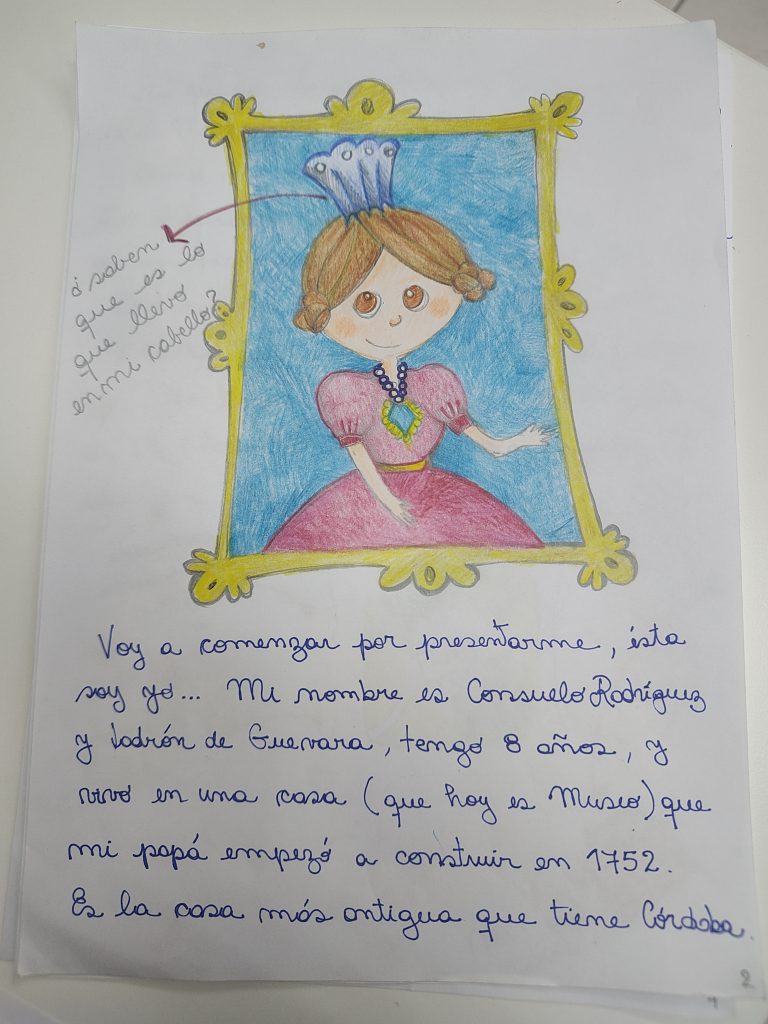 ¿saben
que es lo
que llevo
en mi cabello?
Voy a comenzar por presentarme, ésta
soy yo... Mi nombre es Consuelo Rodríguez
y ladrón de Guevara, tengo 8 años, y
vivo en una casa (que hoy es Museo) que
mi papá empezó a construir en 1752.
Es la casa más antigua que tiene Córdoba.
2